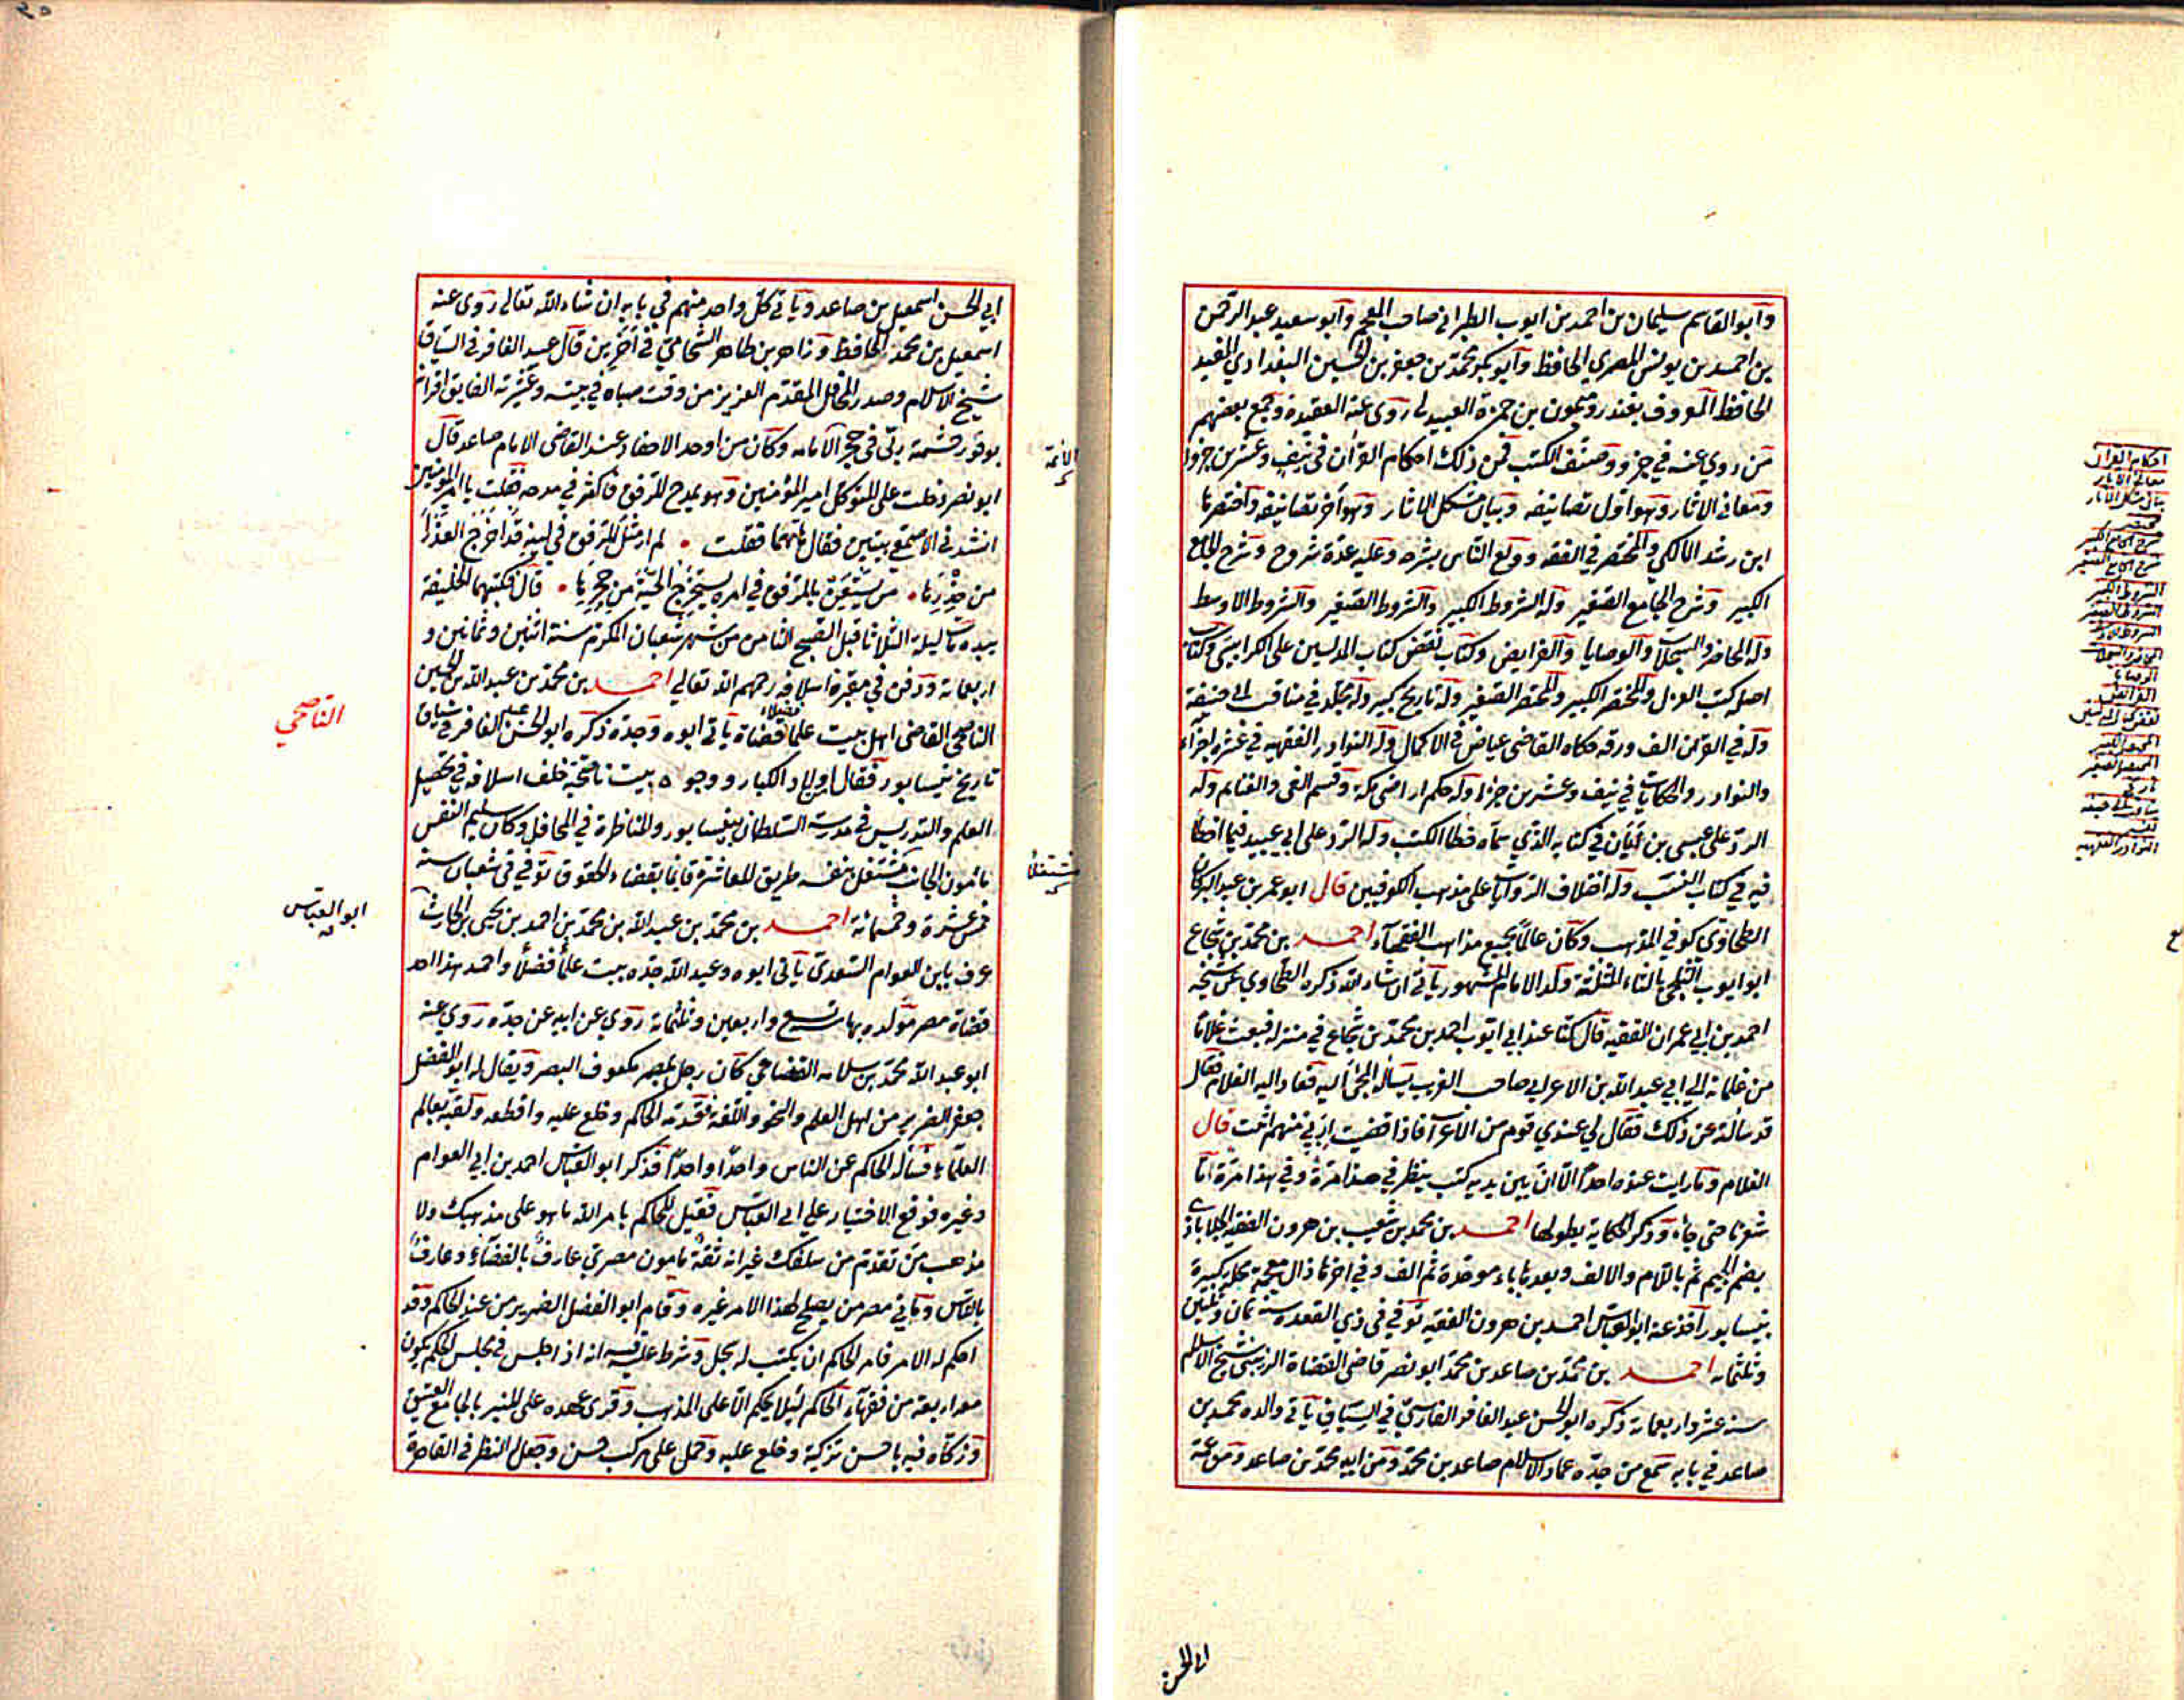 وأبو القاسم سليمان بن احمد بن ايوب الطبراني صاحب المعجم وأبو سعيد عبد الرحمن
بن احمد بن يونس المصري الحافظ وأبو بكر محمد بن جعفر بن الحسين البغدادي المفيد
الحافظ المعروف بغندر وميمون بن حمزة العبيدلي روى عنه العقيدة وجمع بعضهم
من روي عنه في جزو وصنف الكتب فمن ذلك احكام القرآن في نيف وعشرين جزوا
ومعاني الاثار وهو اول تصانيفه وبيان مشكل الاثار وهو آخر تصانيفه واختصرها
ابن رشد المالكي والمختصر في الفقه وولع الناس بشرحه وعليه عدة شروح وشرح الجامع
الكبير وشرح الجامع الصغير وله الشروط الكبير والشروط الصغير والشروط الاوسط
وله المحاضر والسجلات والوصايا والفرايض وكتاب نقض كتاب المدلسين على الكرابيسي وكتاب
اصله كتب العزل والمختصر الكبير والمختصر الصغير وله تاريخ كبير وله مجلد في مناقب ابي حنيفة
وله في القرآن الف ورقة حكاه القاضي عياض في الاكمال وله النوادر الفقهية في عشرة اجزاء
والنوادر والحكايات في نيف وعشرين جزءا وله حكم اراضي مكة وقسم الفئ والغنايم وله
الرد على عيسى بن ابان في كتابه الذي سماه خطا الكتب وله الرد على ابي عبيد فيما اخطا
فيه في كتاب النسب وله اختلاف الروايات على مذهب الكوفيين قال ابو عمر بن عبد البر كان
الطحاوي كوفي المذهب وكان عالما بجميع مذاهب الفقهاء احمد بن محمد بن شجاع
ابو ايوب الثلجي بالثاء المثلثة ولد الامام المشهور يأتي ان شاء الله ذكره الطحاوي عن شيخه
احمد بن ابي عمران الفقيه قال كنا عند ابي ايوب احمد بن محمد بن شجاع في منزله فبعث غلاما
من غلمانه الى ابي عبد الله بن الاعرابي صاحب الغريب يسأله المجئ اليه فعاد اليه الغلام فقال
قد سألته عن ذلك فقال لي عندي قوم من الاعراب فاذا قضيت اربي منهم اتيت قال
الغلام وما رايت عنده احدا الا ان بين يديه كتب ينظر في هذا مرة وفي هذا مرة ثم ما
شعرنا حتى جاء وذكر الحكاية بطولها احمد بن محمد بن شعيب بن هرون الفقيه الجلاباذي
بضم الجيم ثم باللام والالف وبعدها باء موحدة ثم الف وفي اخرها ذال معجمة محلة كبيرة
بنيسابور أخذ عنه ابو العباس احمد بن هرون الفقيه توفي في ذي القعدة سنة ثمان وثلثين
وثلثمائة احمد بن محمد بن صاعد بن محمد ابو نصر قاضي القضاة الزينبي شيخ الاسلام
سنة عشر واربعمائة ذكره ابو الحسن عبد الغافر الفارسي في السياق يأتي والده محمد بن
صاعد في بابه سمع من جده عماد الاسلام صاعد بن محمد ومن ابيه محمد بن صاعد ومن عمه
ابي الحسن
احكام القرآن
معاني الاثار
بيان مشكل الاثار
شرح الجامع الكبير
شرح الجامع الصغير
الشروط الكبير
الشروط الصغير
المحاضر والسجلات
الوصايا
الفرائض
المختصر الكبير
المختصر الصغير
تاريخ
النوادر الفقهية
ابي الحسن اسمعيل بن صاعد ويأتي كل واحد منهم في بابه ان شاء الله تعالى روى عنه
اسمعيل بن محمد الحافظ وزاهر بن طاهر الشحامي في آخرين قال عبد الغافر في السياق
شيخ الاسلام وصدر المحافل المقدم العزيز من وقت صباه في بيته وعشيرته الفايق اقرانه
بوفور حشمته ربي في حجر الامامة وكان من اوحد الاحفاد عند القاضي الامام صاعد قال
ابو نصر دخلت على المتوكل امير المؤمنين وهو يمدح الرفق فأكثر في مدحه فقلت يا امير المؤمنين
انشدني الاصمعي بيتين فقال هاتهما فقلت • لم ار مثل الرفق في لينه قد اخرج العذرا
من خدرها • من يستعن بالرفق في امره يستخرج الحية من جحرها • قال فكتبهما الخليفة
بيده مات ليلة الثلاثا قبل الصبح الثامن من شهر شعبان المكرم سنة اثنين وثمانين و
اربعمائة ودفن في مقبرة اسلافه رحمهم الله تعالى احمد بن محمد بن عبد الله بن الحسين
الناصحي القاضي اهل بيت علما فضلاء قضاة يأتي ابوه وجده ذكره ابو الحسن عبد الغافر في سياق
تاريخ نيسابور فقال من اولاد الكبار ووجوه بيت ناصحية خلف اسلافه في تحصيل
العلم والتدريس في مدرسة السلطان بنيسابور والمناظرة في المحافل وكان سليم النفس
مأمون الجانب مشتغل بنفسه طريق المعاشرة قايما بقضاء الحقوق توفي في شعبان سنة
خمس عشرة وخمسمائة احمد بن محمد بن عبد الله بن محمد بن احمد بن يحيى بن الحارث
عرف بابن العوام السعدي يأتي ابوه وعبد الله جده بيت علما فضلا واحمد هذا احد
قضاة مصر مولده بها سنة تسع واربعين وثلثمائة روى عن ابيه عن جده روى عنه
ابو عبد الله محمد بن سلامه القضاعي كان رجل بمصر مكفوف البصر ويقال له ابو الفضل
جعفر الضرير من اهل العلم والنحو واللغة فقدمه الحاكم وخلع عليه واقطعه ولقبه بعالم
العلماء فسأله الحاكم عن الناس واحدا واحدا فذكر ابو العباس احمد بن ابي العوام
وغيره فوقع الاختيار على ابي العباس فقيل للحاكم بامر الله ما هو على مذهبك ولا
مذهب من تقدم من سلفك غير انه ثقة مأمون مصري عارف بالقضاء وعارف
بالناس وما في مصر من يصلح لهذا الامر غيره وقام ابو الفضل الضرير من عند الحاكم وقد
احكم له الامر فامر الحاكم ان يكتب له سجل وشرط عليه فيه انه اذا جلس في مجلس الحكم يكون
معه اربعة من فقهاء الحاكم لئلا يحكم الا على المذهب وقرئ عهده على المنبر بالجامع العتيق
وزكاه فيه باحسن تزكية وخلع عليه وحمل على مركب حسن وجعل له النظر في القاهرة
الأئمة
مشتغلا
الناصحي
ابو العباس